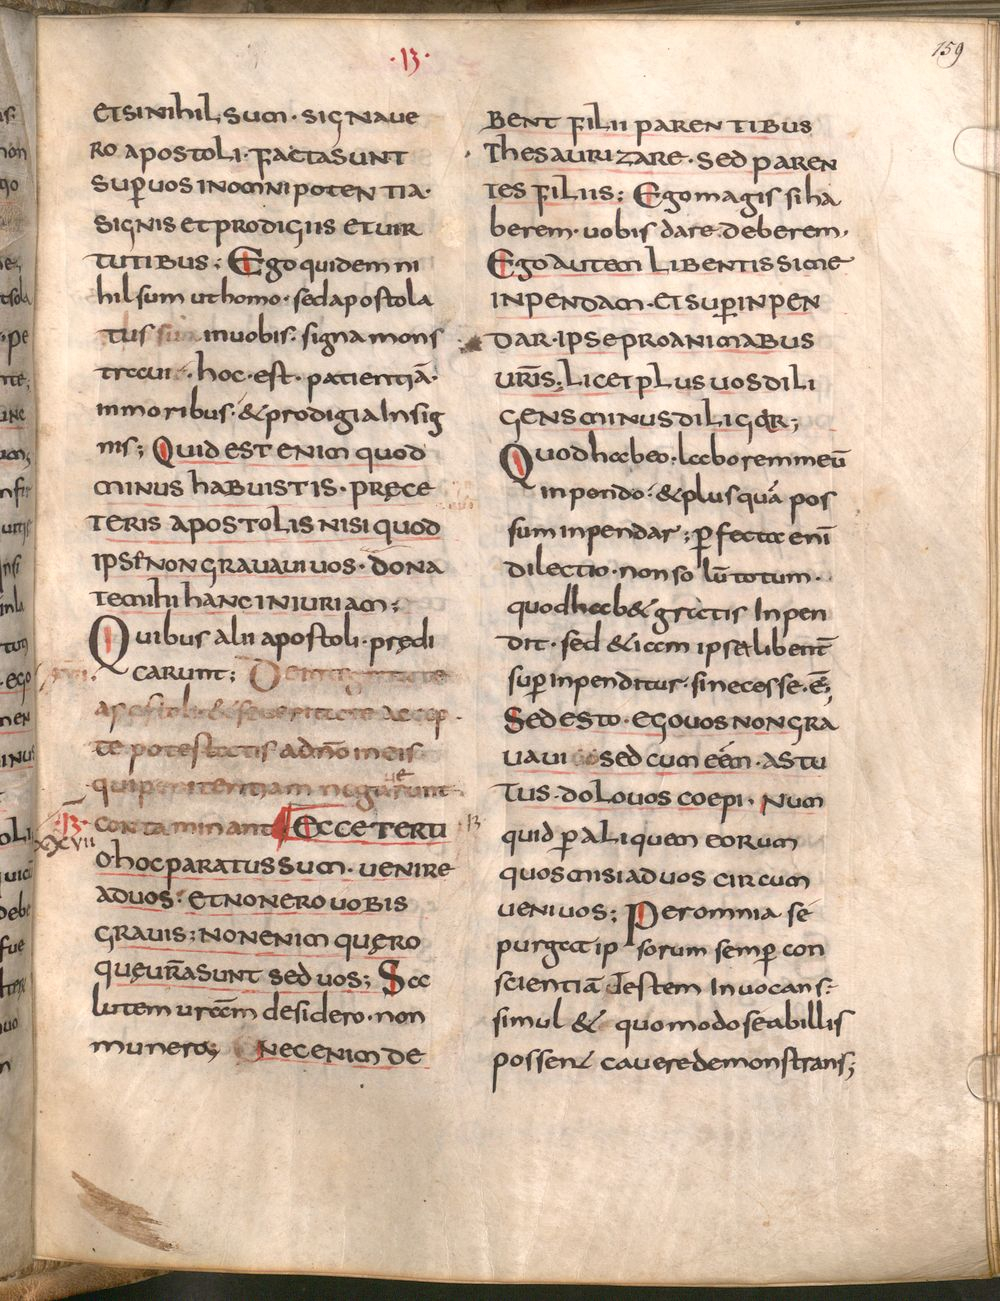 ·13·
159
etsinihil sum · signaue
ro apostoli · factasunt
sup̱uos inomnipotentia ·
signis et prodigiis et uir
tutibus ; Ego quidem ni
hil sum ut homo · sed apostola
tus inuobis : signa mons
trauı · hoc · est · patientiā ·
inmoribus · & prodigia Insig
nis ; Quid est enim quod
minus habuistis · pręce
teris apostolis nisi quod
ipse non grauaui uos · dona
te mihi hanc iniuriam ;
Quibus alii apostoli · prędi
carunt ;
apostoli & seueritate accep
te potestatis ad dn̄o in eis
qui penitentiam negarunt
contaminant Ecce tertı
13
xxcvii
13
o hoc paratus sum · uenire
ad uos · et non ero uobis
grauis ; non enim quęro
quę ur̄a sunt sed uos ; Sa
lutem ur̄am desidero · non
munera ; Nec enim de
bent filii parentibus
thesaurizare · sed paren
tes filiis ; Ego magis si ha
berem · uobis dare deberem ·
Ego autem libentissime
inpendam · et sup̱inpen
dar · ipse pro animabus
ur̄is ; licet plus uos dili
gens minus diligar ;
Quod habeo · laborem meū
inpendo : & plus quā pos
sum inpendar ; p̱fecta enī
dilectio · non solū totum ·
quod hab& gratis Inpen
dit · sed & iam ipsa libent̄
sup̱inpenditur · si necesse · ē ;
Sed esto · ego uos non gra
uaui sed cum eēm · astu
tus · dolo uos coepi · Num
quid p̱ aliquem eorum
quos misi ad uos circum
ueni uos ; Per omnia se
purgat ipsorum semp̱ con
scientiā Testem Inuocans :
simul & quomodo se ab illis
possent cauere demonstrans ;